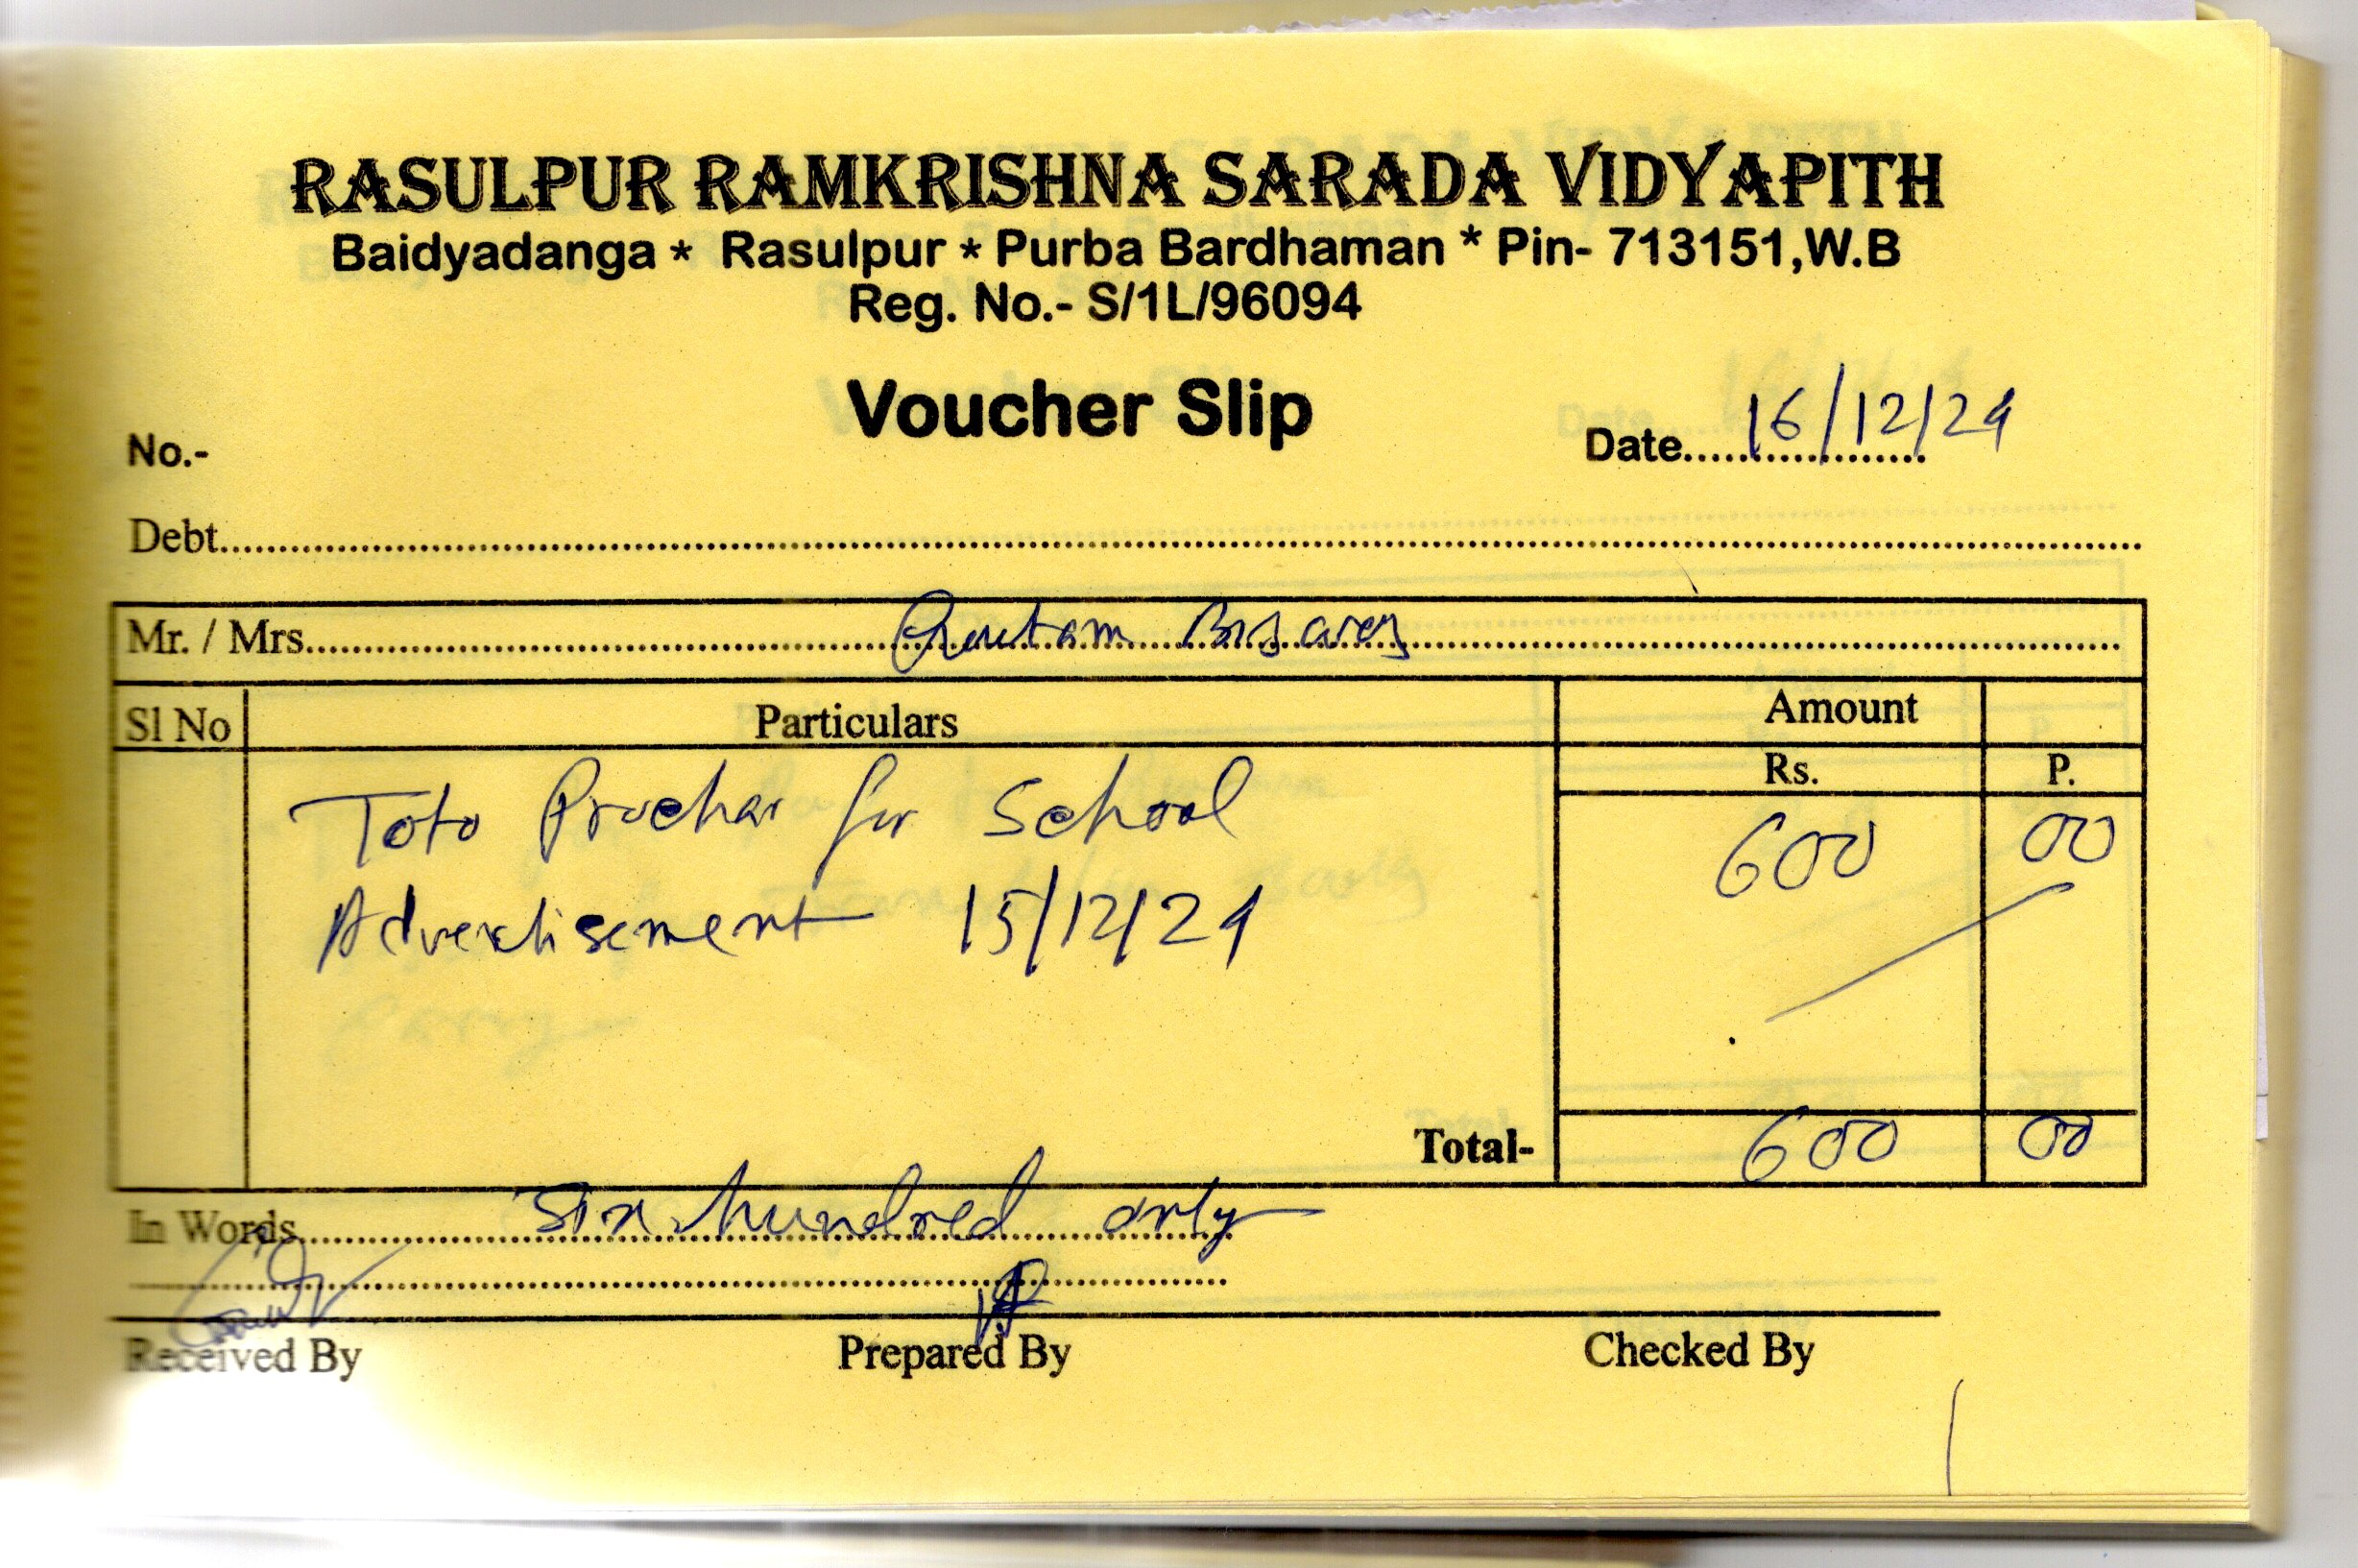 RASULPUR RAMKRISHNA SARADA VIDYAPITH
Baidyadanga * Rasulpur * Purba Bardhaman * Pin- 713151,W.B
Reg. No.- S/1L/96094
Voucher Slip
No.- Date 16/12/24
Debt
Mr. / Mrs. Goutam Biswas
Sl No Particulars Amount
Rs. P.
Toto Prochar for School 600 00
Advertisement 15/12/24
Total- 600 00
In Words Six hundred only
Received By Prepared By Checked By